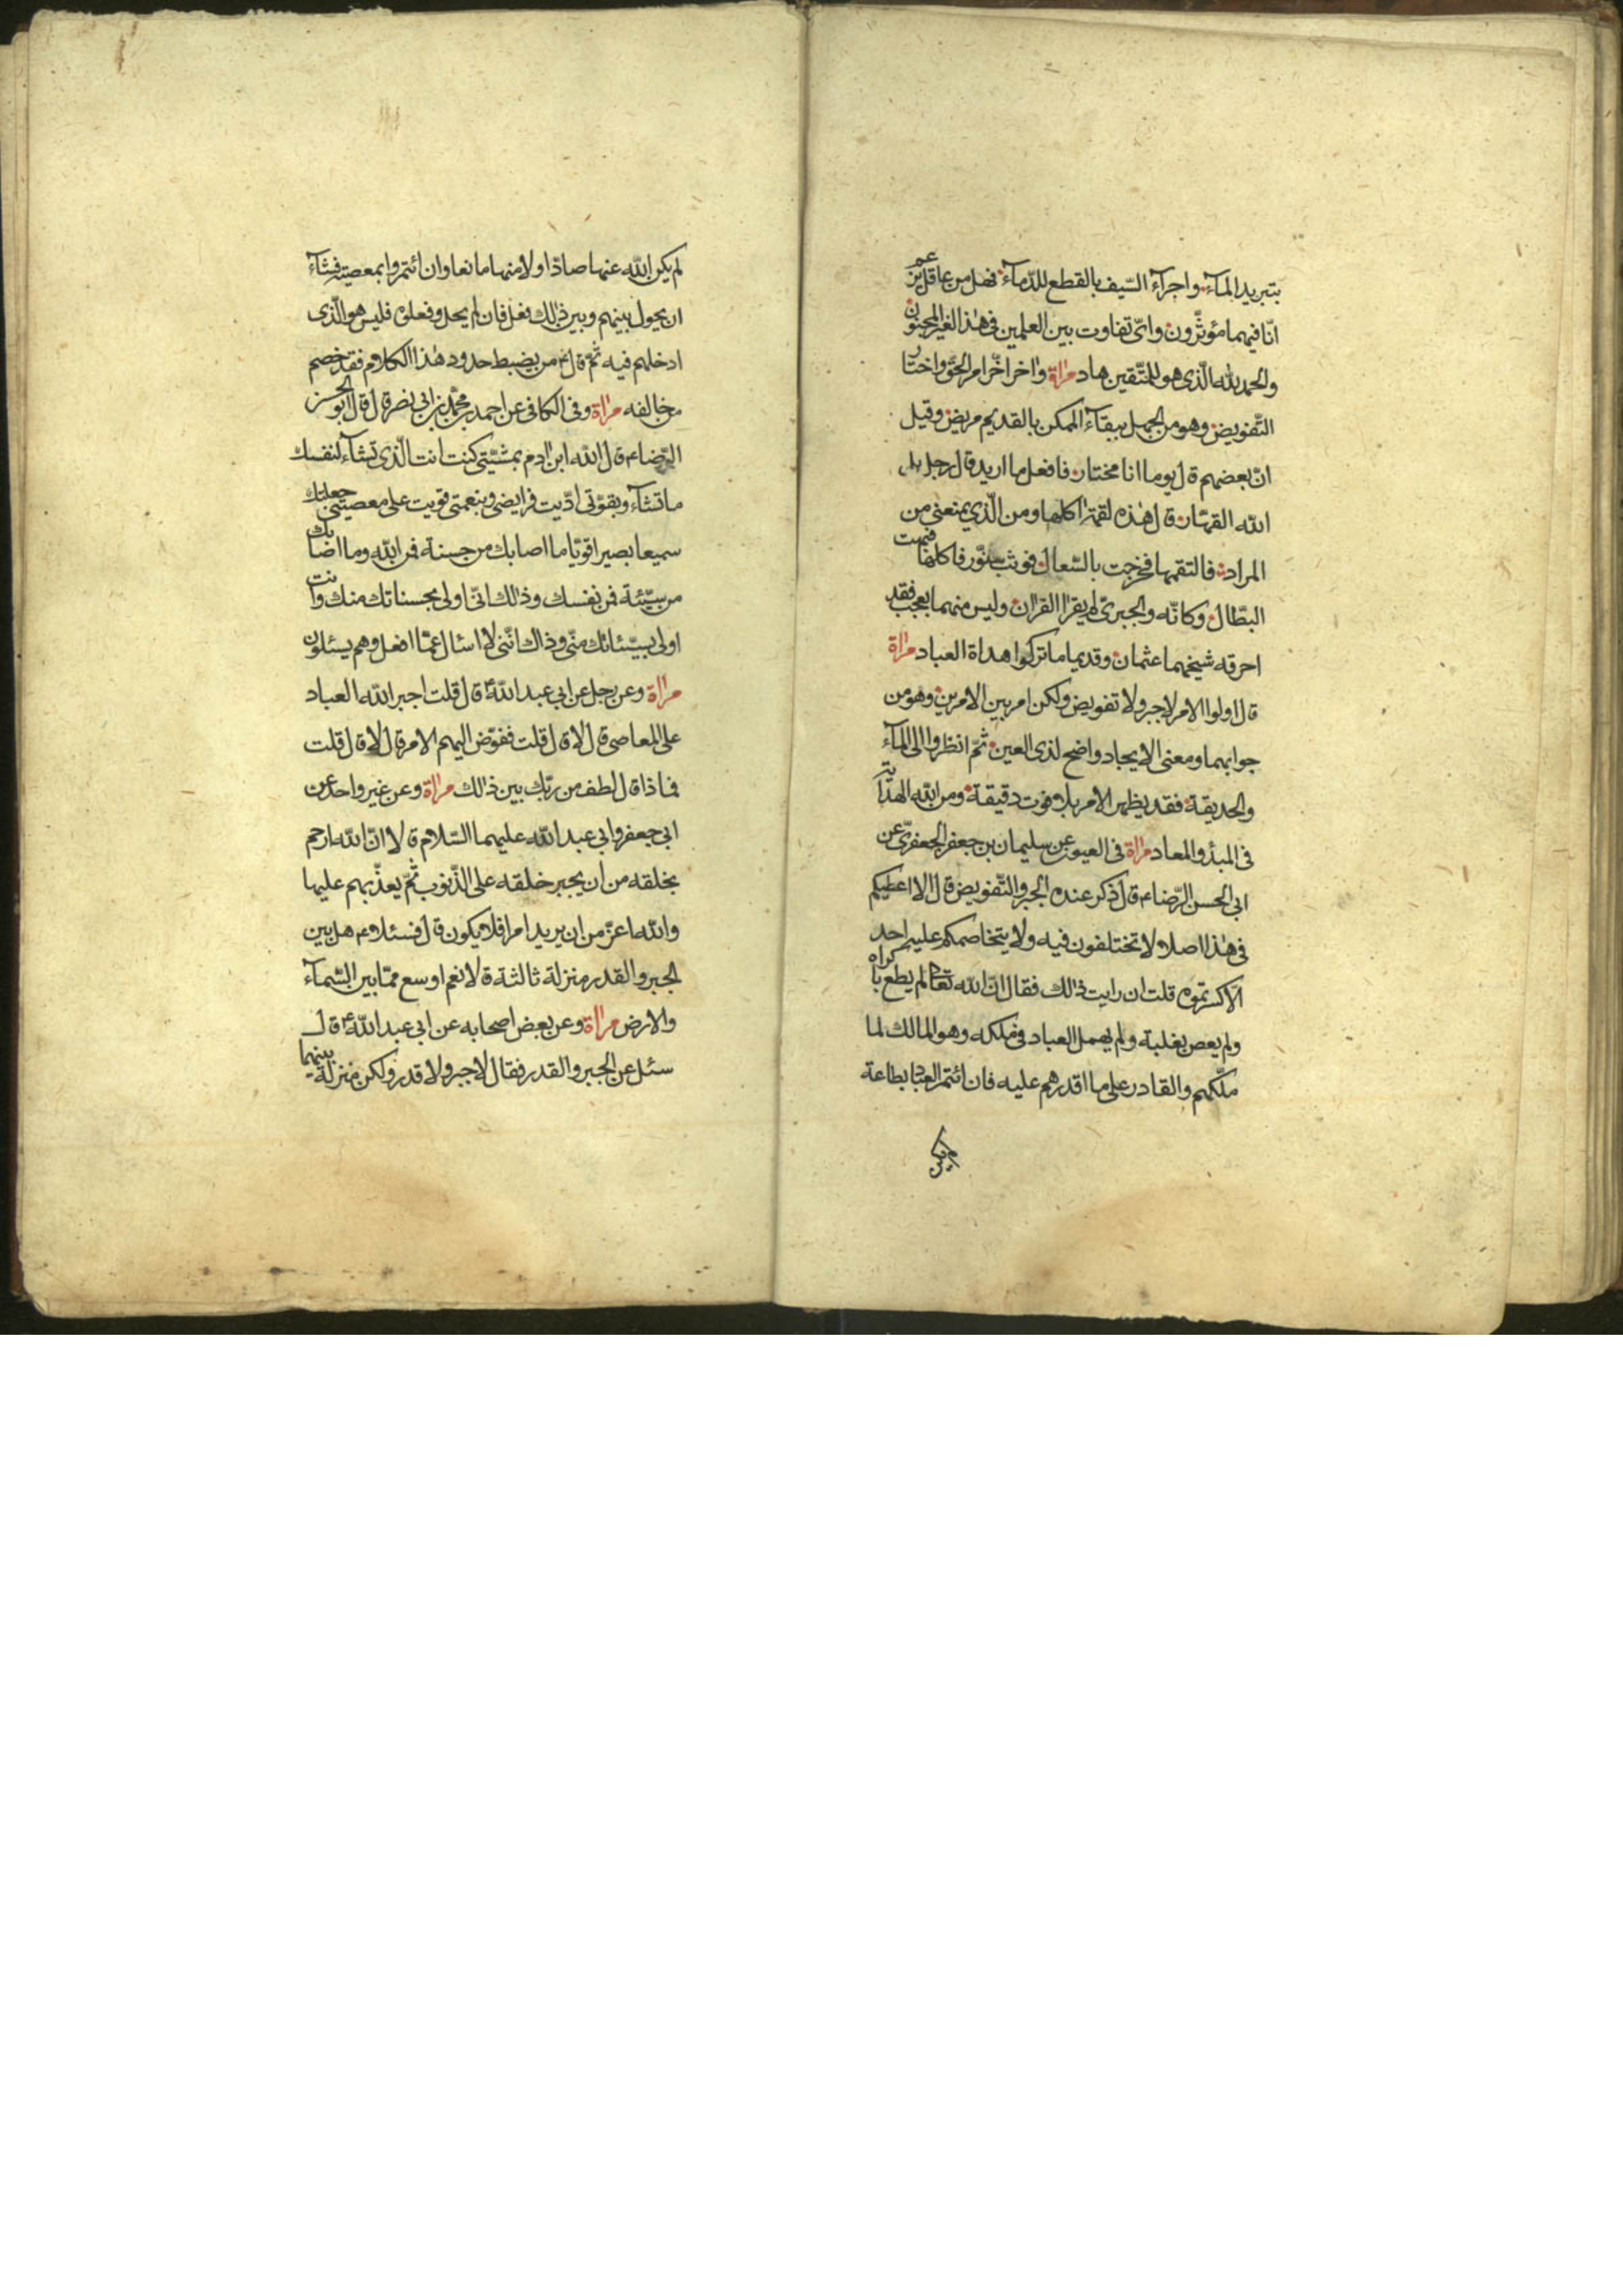 بتبريد المآء واجرآء السّيف بالقطع للدّمآء فهل من عاقل يزعم
انّا فيهما مؤثّرون واىّ تفاوت بين العلمين فى هذا الغير المجنون
والحمد للّه الّذى هو للمتّقين هاد مراة واخر اخّر امر الحقّ واختار
التّفويض وهو من الجهل ببقآء الممكن بالقديم مريض وقيل
انّ بعضهم قال يوما انا مختار فافعل ما اريد قال رجل بل
اللّه القهّار قال هذه لقمة اكلها ومن الّذي يمنعني من
المراد فالتقمها فخرجت بالسّعال فوثب سنّور فاكلها فبهت
البطّال وكانّه والجبرىّ لم يقرا القران وليس منهما بعجب فقد
احرقه شيخهما عثمان وقديما ما تركوا هداة العباد مراة
قال اولوا الامر لا جبر ولا تفويض ولكن امر بين الامرين وهو من
جوابهما ومعنى الايجاد واضح لذى العين ثمّ انظروا الى المآء
والحديقة فقد يظهر الامر بلا فوت دقيقة ومن اللّه الهداية
فى المبدأ والمعاد مراة فى العيون عن سليمان بن جعفر الجعفرىّ عن
ابى الحسن الرّضاء قال ذكر عنده الجبر والتّفويض قال الا اعطيكم
فى هذا اصلا لا تختلفون فيه ولا يتخاصمكم عليه احد
الّا كسرتموه قلت ان رايت ذلك فقال انّ اللّه تعالى لم يطع باكراه
ولم يعص بغلبة ولم يهمل العباد فى ملكه وهو المالك لما
ملّكهم والقادر على ما اقدرهم عليه فان ائتمر العباد بطاعة
لم يكن
لم يكن اللّه عنها صادّا ولا منها مانعا وان ائتمروا بمعصيته فشآء
ان يحول بينهم وبين ذلك فعل فان لم يحل وفعلوه فليس هو الّذى
ادخلهم فيه ثمّ قال ع من يضبط حدود هذا الكلام فقد خصم
من خالفه مراة وفى الكافى عن احمد بن محمّد بن ابى نصر قال قال ابو الحسن
الرّضاء قال اللّه ابن ادم بمشيّتى كنت انت الّذى تشآء لنفسك
ما تشآء وبقوّتى ادّيت فرايضى وبنعمتى قويت على معصيتى جعلتك
سميعا بصيرا قويّا ما اصابك من حسنة فمن اللّه وما اصابك
من سيّئة فمن نفسك وذلك انّى اولى بحسناتك منك وانت
اولى بسيّئاتك منّى وذاك انّنى لا اسئال عمّا افعل وهم يسئلون
مراة وعن رجل عن ابى عبد اللّه ع قال قلت اجبر اللّه العباد
على المعاصى قال لا قال قلت ففوّض اليهم الامر قال لا قال قلت
فماذا قال لطف من ربّك بين ذلك مراة وعن غير واحد عن
ابى جعفر وابى عبد اللّه عليهما السّلام قالا انّ اللّه ارحم
بخلقه من ان يجبر خلقه على الذّنوب ثمّ يعذّبهم عليها
واللّه اعزّ من ان يريد امرا فلا يكون قال فسئلا ع هل بين
الجبر والقدر منزلة ثالثة قالا نعم اوسع ممّا بين السّمآء
والارض مراة وعن بعض اصحابه عن ابى عبد اللّه ع قال
سئل عن الجبر والقدر فقال لا جبر ولا قدر ولكن منزلة بينهما